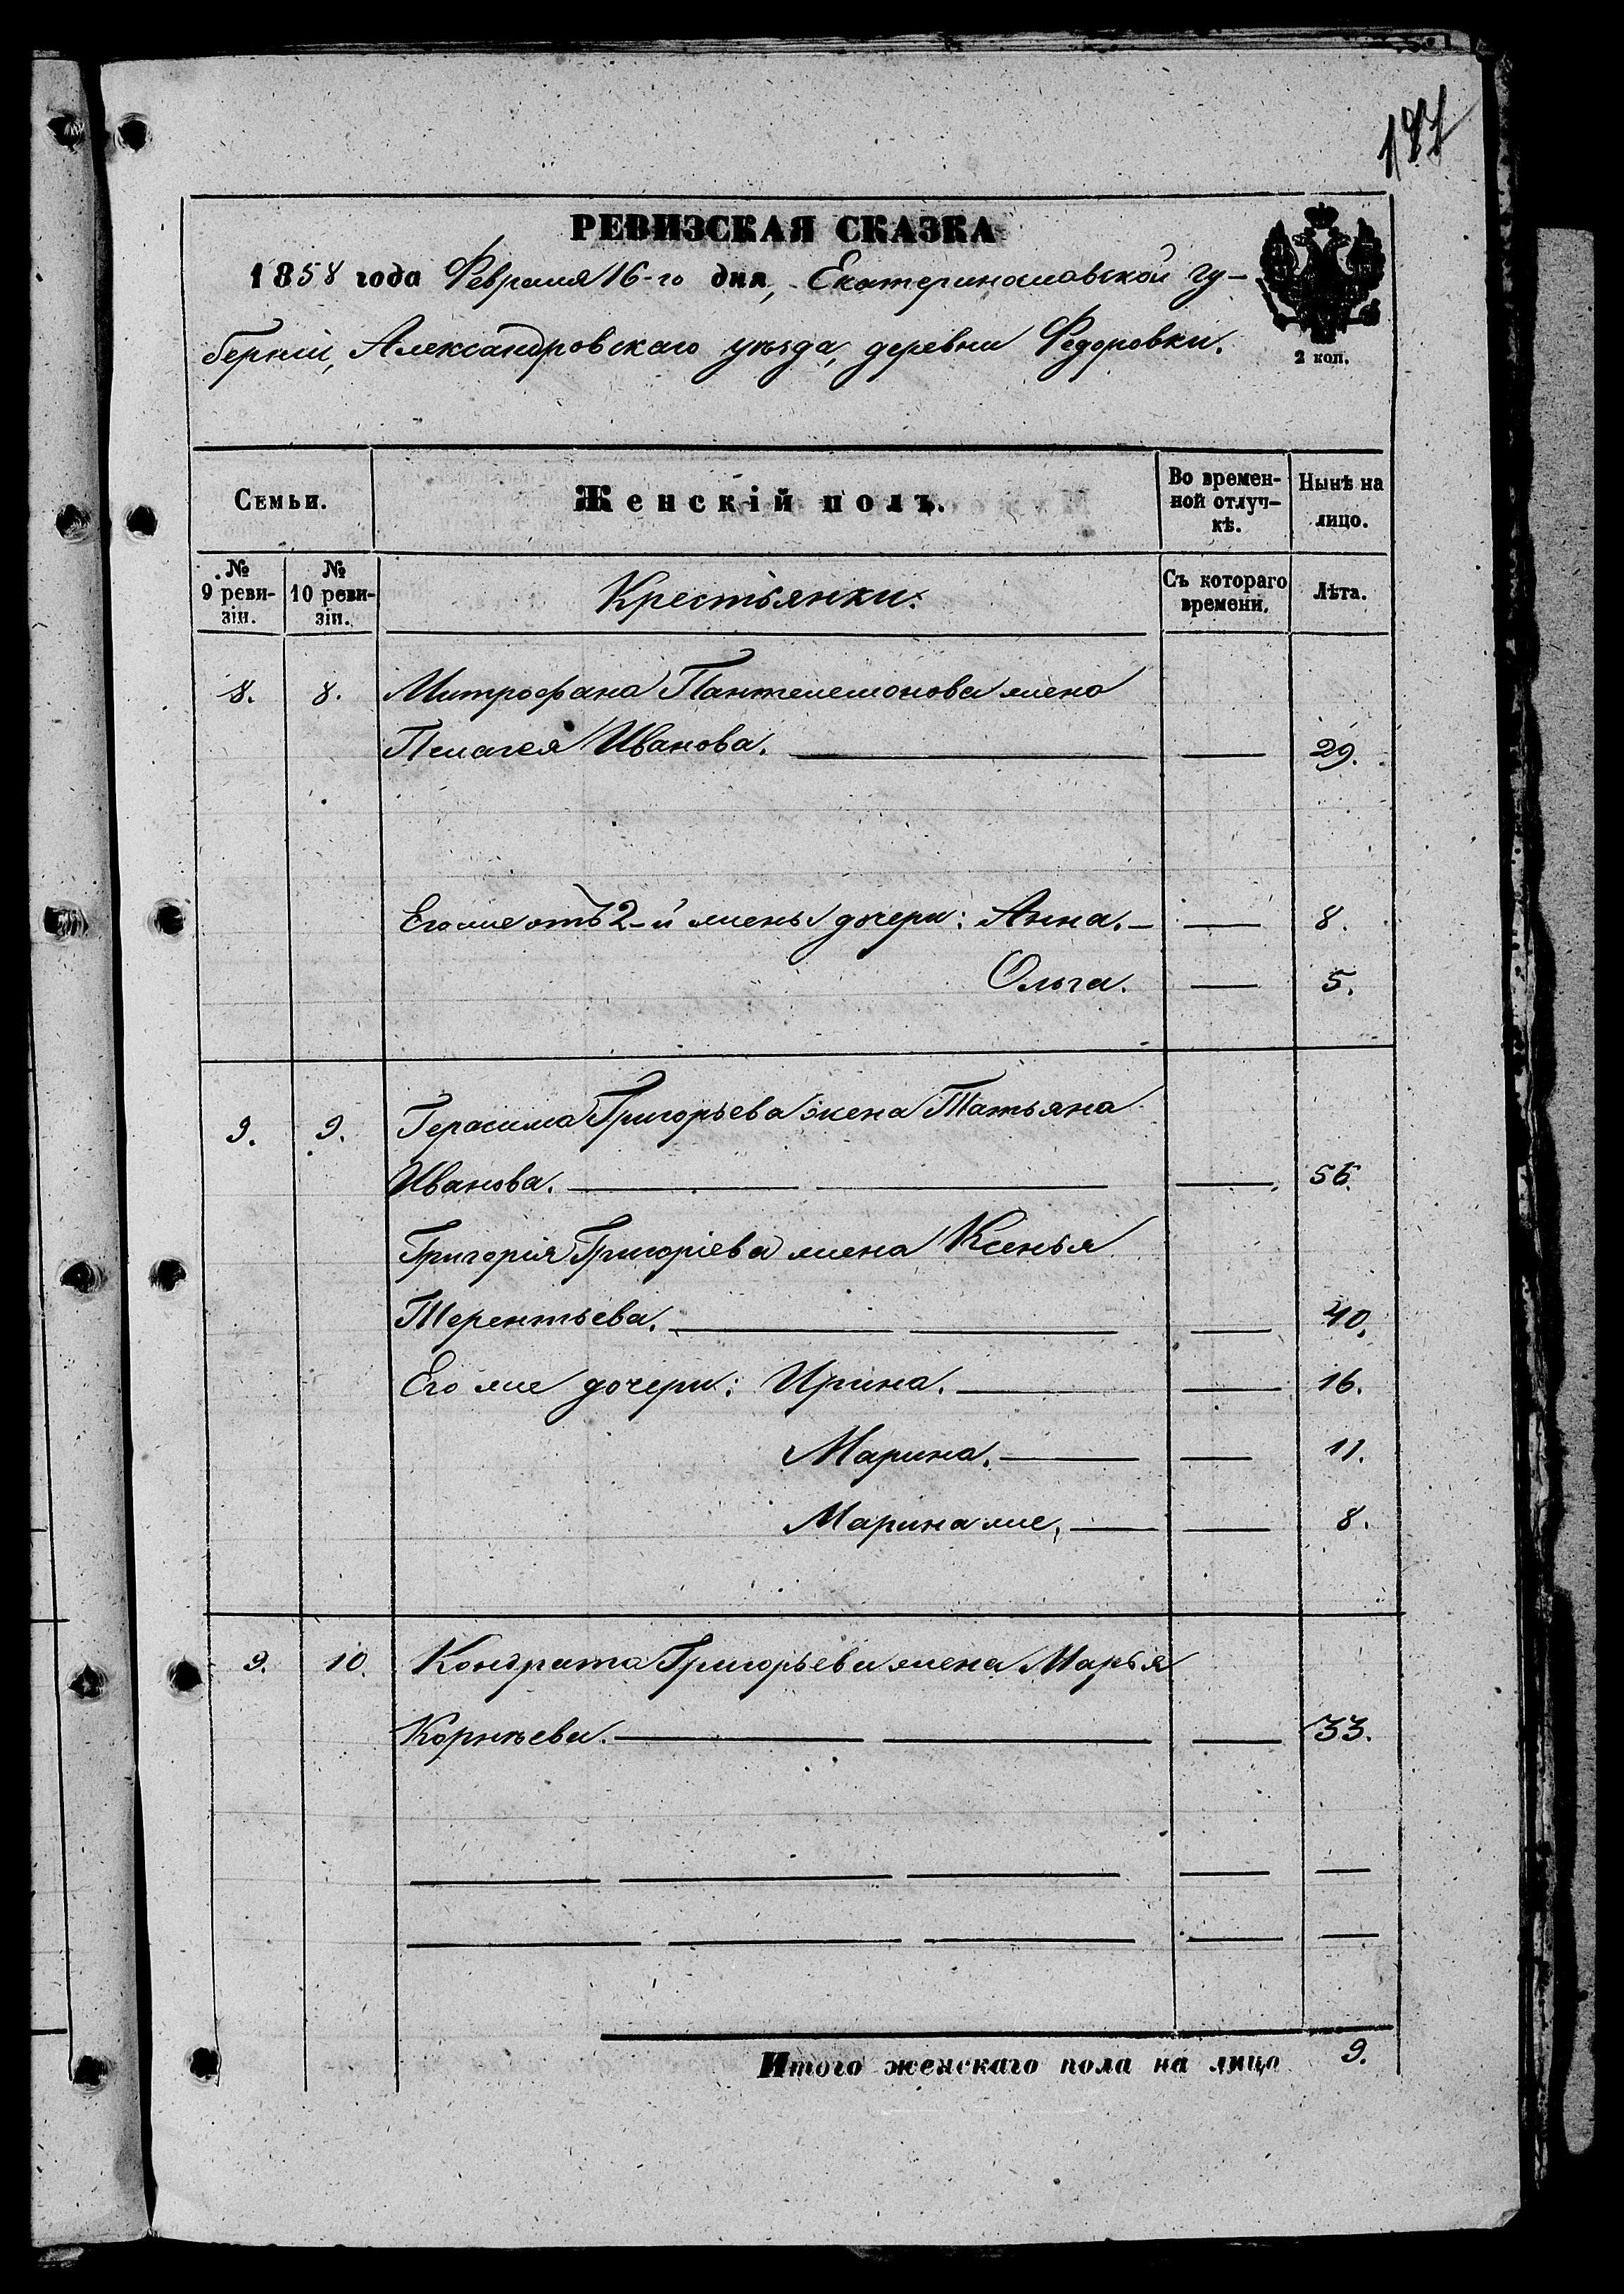 РЕВИЗСКАЯ СКАЗКА
1858 года Февраля 16-го дня, Екатеринославской гу-
берніи, Александровскаго уѣзда, деревни Федоровки.
2 коп.
Семьи. Женскій полъ. Во времен-ной отлуч-кѣ. Нынѣ на лицо.
№ 9 реви-зіи. № 10 реви-зіи. Крестьянки. Съ котораго времени. Лѣта.
8. 8. Митрофана Пантелемонова жена
Пелагея Иванова. — 29.
Его же отъ 2-й жены дочери: Анна. — 8.
Ольга. — 5.
9. 9. Герасима Григорьева жена Татьяна
Иванова. — 56.
Григорія Григоріева жена Ксенья
Терентьева. — 40.
Его же дочери: Ирина. — 16.
Марина. — 11.
Марина же. — 8.
9. 10. Кондрата Григорьева жена Марья
Корнѣева. — 33.
Итого женскаго пола на лицо 9.